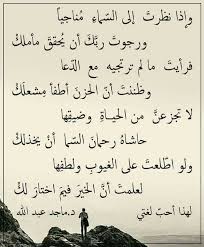 وإذا نظرتَ إلى السَّماءِ مُناجياً
ورجوتَ ربَّكَ أن يُحققَ مأملكْ
فرأيتَ ما لم ترتجيه مع الدّعا
وظننتَ أنّ الحزنَ أطفأ مِشعلَكْ
لا تجزعنَّ من الحياةِ وضيقِها
حاشاهُ رحمانَ السّما أن يخذلكْ
ولو اطّلعتَ على الغيوبِ ولطفِها
لعلمتَ أنَّ الخيرَ فيمَ اختارَ لكْ
لهذا أحبّ لغتي
د.ماجد عبد الله